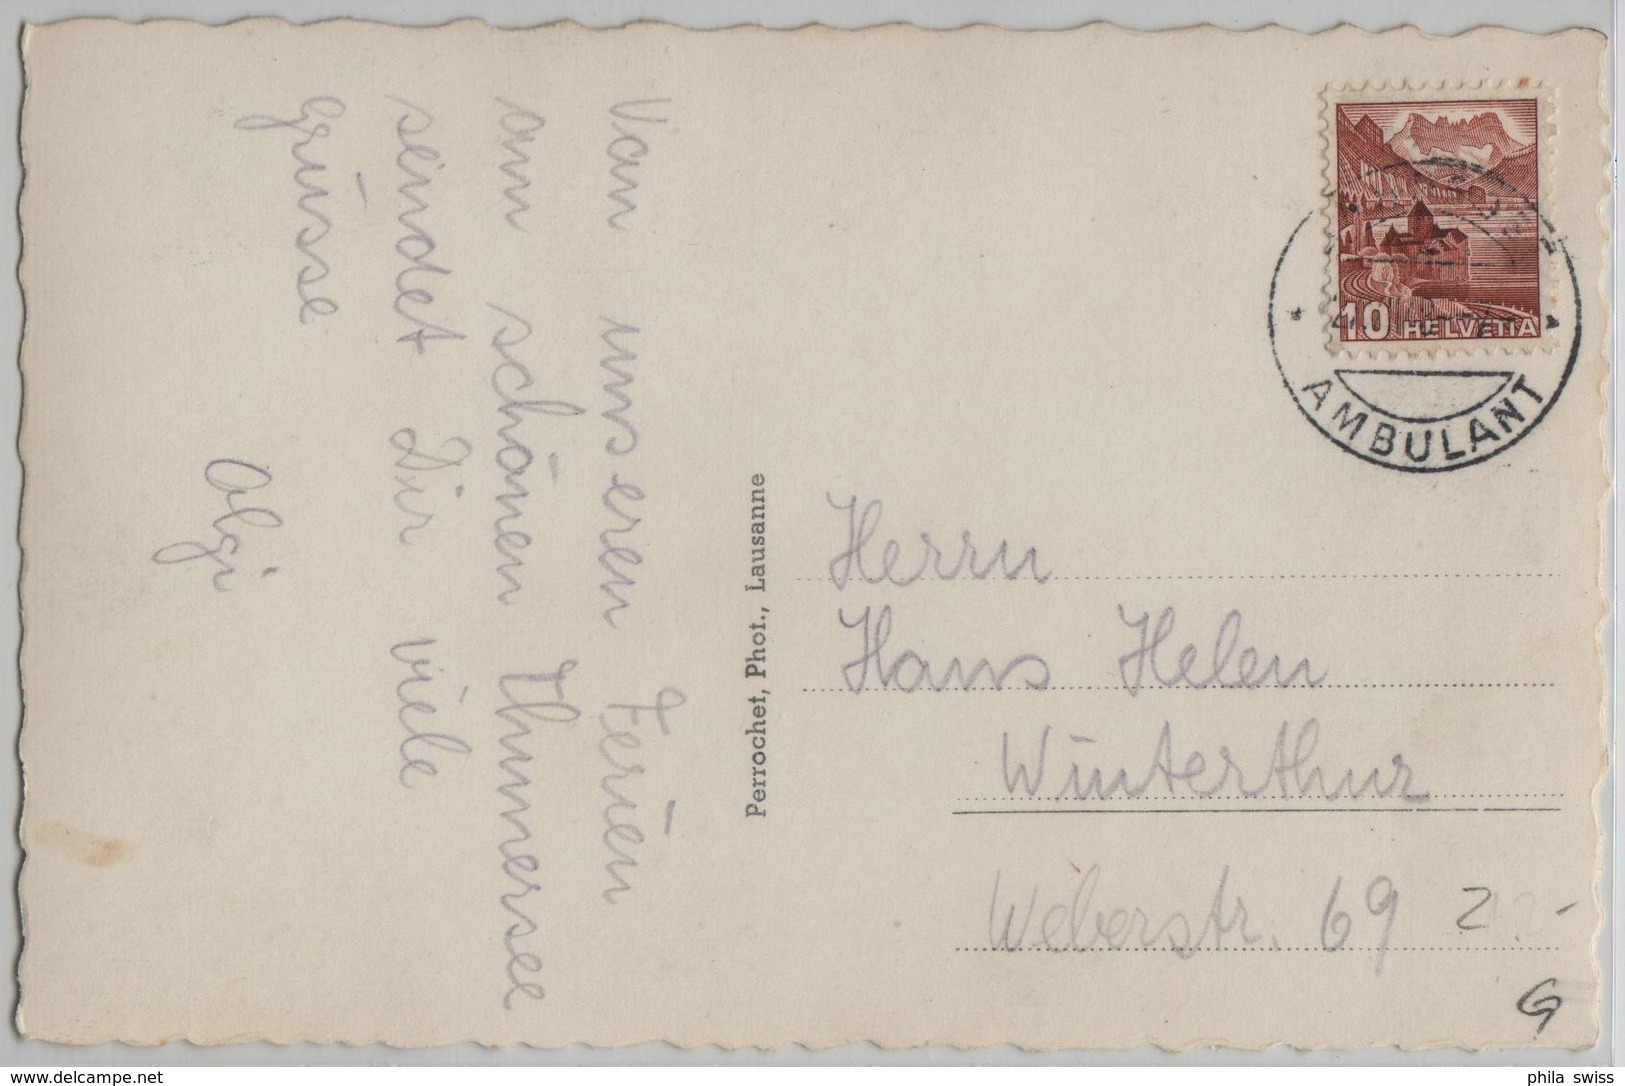 Von unseren Ferien
am schönen Thunersee
sendet Dir viele
Grüsse
Olgi
Perrochet, Phot., Lausanne
10 HELVETIA
AMBULANT
Herrn
Hans Helen
Winterthur
Weberstr. 69
phila swiss
www.delcampe.net